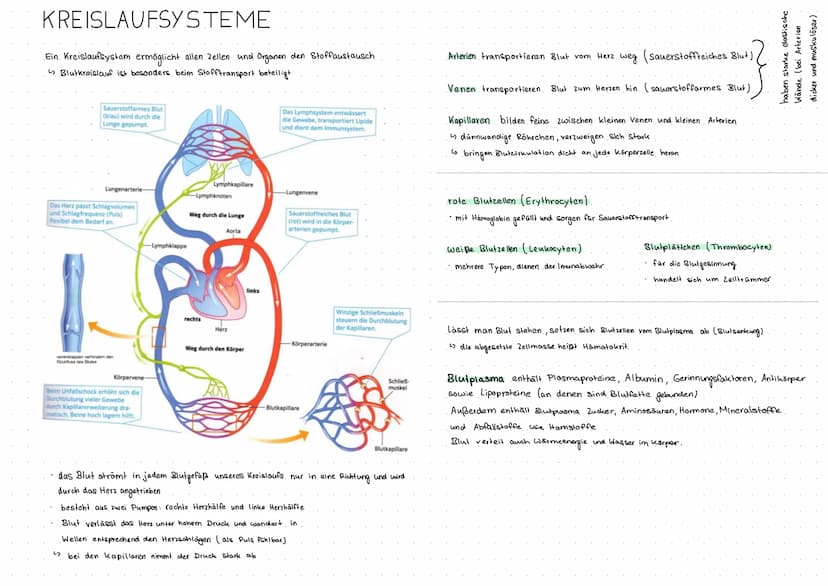 KREISLAUFSYSTEME
Ein Kreislaufsystem ermöglicht allen Zellen und Organen den Stoffaustausch
↳ Blutkreislauf ist besonders beim Stofftransport beteiligt
Sauerstoffarmes Blut
(blau) wird durch die
Lunge gepumpt.
Das Lymphsystem entwässert
die Gewebe, transportiert Lipide
und dient dem Immunsystem.
Lymphkapillare
Lungenarterie
Lymphknoten
Lungenvene
Das Herz passt Schlagvolumen
und Schlagfrequenz (Puls)
flexibel dem Bedarf an.
Weg durch die Lunge
Sauerstoffreiches Blut
(rot) wird in die Körper-
arterien gepumpt.
Aorta
Lymphklappe
links
rechts
Herz
Winzige Schließmuskeln
steuern die Durchblutung
der Kapillaren.
Weg durch den Körper
Körperarterie
Venenklappen verhindern den
Rückfluss des Blutes
Körpervene
Beim Unfallschock erhöht sich die
Durchblutung vieler Gewebe
durch Kapillarerweiterung dra-
matisch. Beine hoch lagern hilft.
Schließ-
muskel
Blutkapillare
Blutkapillare
· das Blut strömt in jedem Blutgefäß unseres Kreislaufs nur in eine Richtung und wird
durch das Herz angetrieben
· besteht aus zwei Pumpen: rechte Herzhälfte und linke Herzhälfte
· Blut verlässt das Herz unter hohem Druck und wandert in
Wellen entsprechend den Herzschlägen (als Puls fühlbar)
↳ bei den Kapillaren nimmt der Druck stark ab
Arterien transportieren Blut vom Herz weg (sauerstoffreiches Blut)
Venen transportieren Blut zum Herzen hin (sauerstoffarmes Blut)
haben starke elastische
Wände (bei Arterien
dicker und muskulöser)
Kapillaren bilden feins zwischen kleinen Venen und kleinen Arterien
↳ dünnwandige Röhrchen, verzweigen sich stark
↳ bringen Blutzirkulation dicht an jede Körperzelle heran
rote Blutzellen (Erythrocyten)
· mit Hämoglobin gefüllt und sorgen für Sauerstofftransport
weiße Blutzellen (Leukocyten)
· mehrere Typen, dienen der Imunabwehr
Blutplättchen (Thrombocyten)
· für die Blutgerinnung
· handelt sich um Zelltrümmer
Lässt man Blut stehen, setzen sich Blutzellen vom Blutplasma ab (Blutsenkung)
↳ die abgesetzte Zellmasse heißt Hämatokrit.
Blutplasma enthält Plasmaproteine, Albumin, Gerinnungsfaktoren, Antikörper
sowie Lipoproteine (an denen sind Blutfette gebunden)
Außerdem enthält Blutplasma Zucker, Aminosäuren, Hormone, Mineralstoffe
und Abfallstoffe wie Harnstoffe
Blut verteilt auch Wärmeenergie und Wasser im Körper.